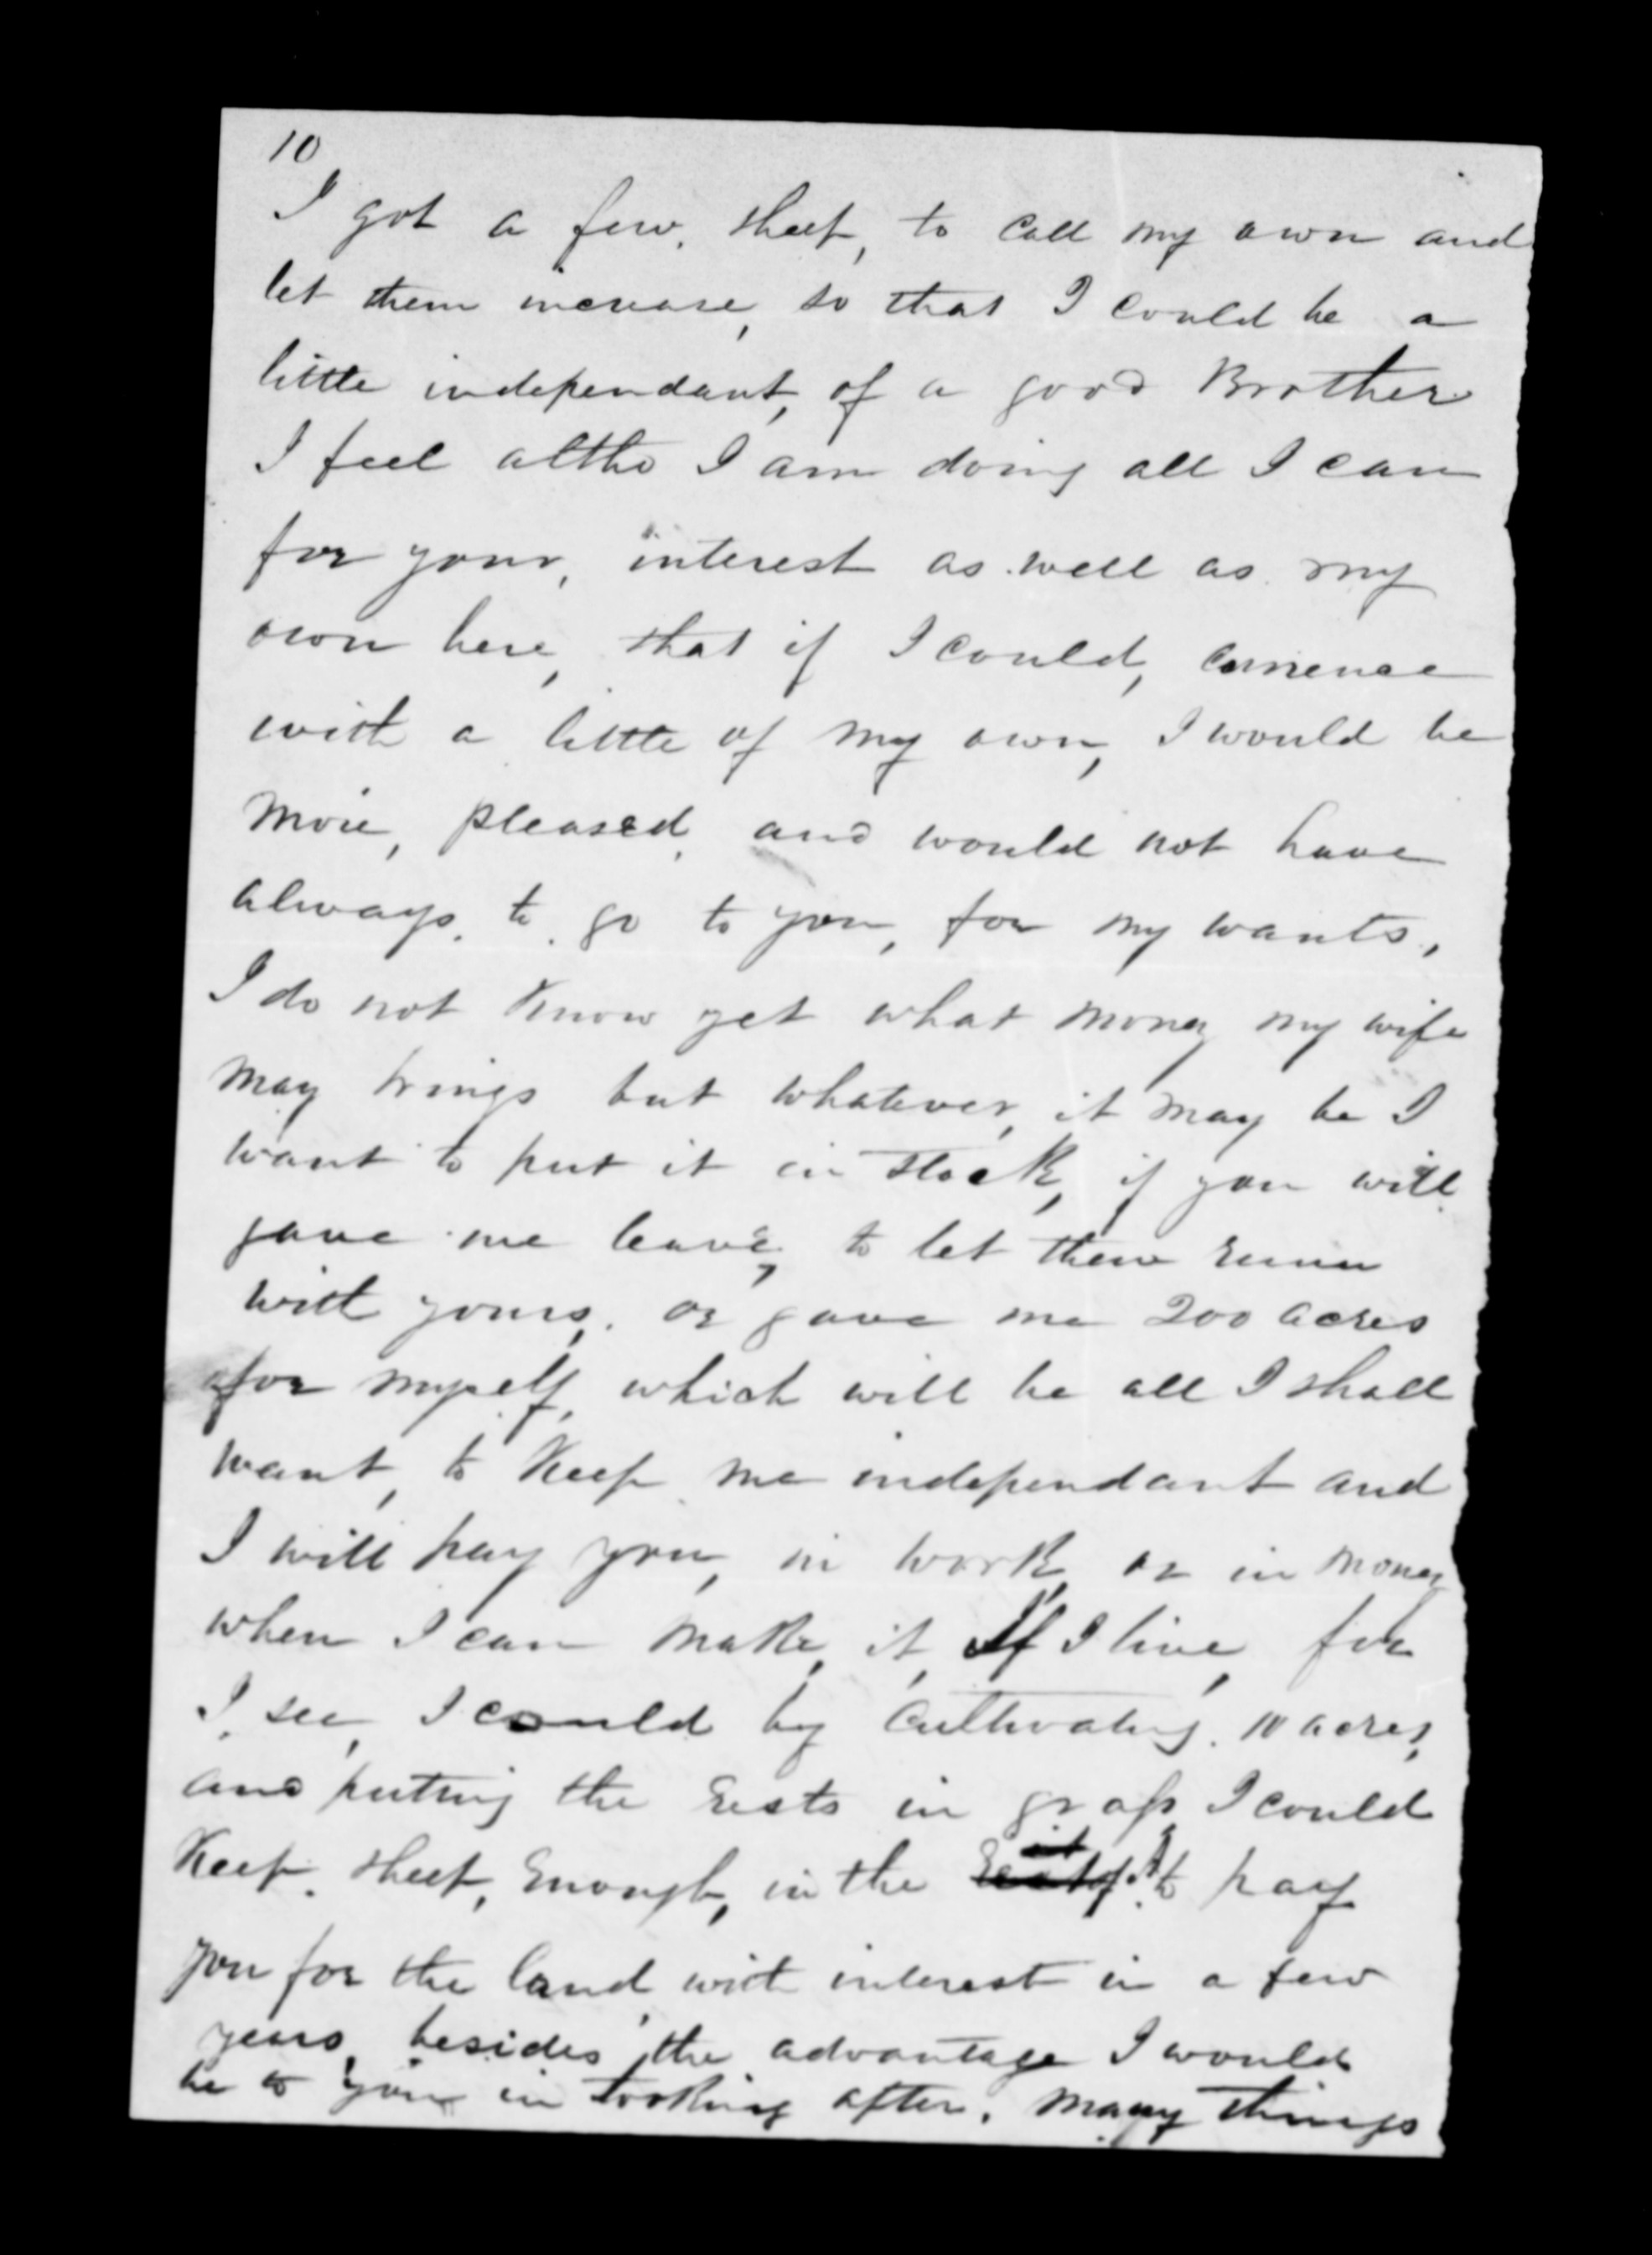 10
I got a few, sheep, to call my own and
let them increase, so that I could be a
little independant, of a good Brother
I feel altho I am doing all I can
for your, interest as well as my
own here, that if I could, comence
with a little of my own, I would be
more, pleased, and would not have
always, to go to you, for my wants,
I do not know yet what money my wife
may brings but whatever, it may be I
want to put it in stock, if you will
gave me leave, to let them runn
with yours, or gave me 200 acres
for myself, which will be all I shall
want, to Keep me independant and
I will pay you, in work, or in money
when I can make, it, If I live, for
I, see, I could by cultivating 10 acres,
and putting the rests in grass, I could
Keep, sheep, Enough, in the to pay
you for the land, with interest in a few
years, besides, the advantage I would
be to you in looking after, many things